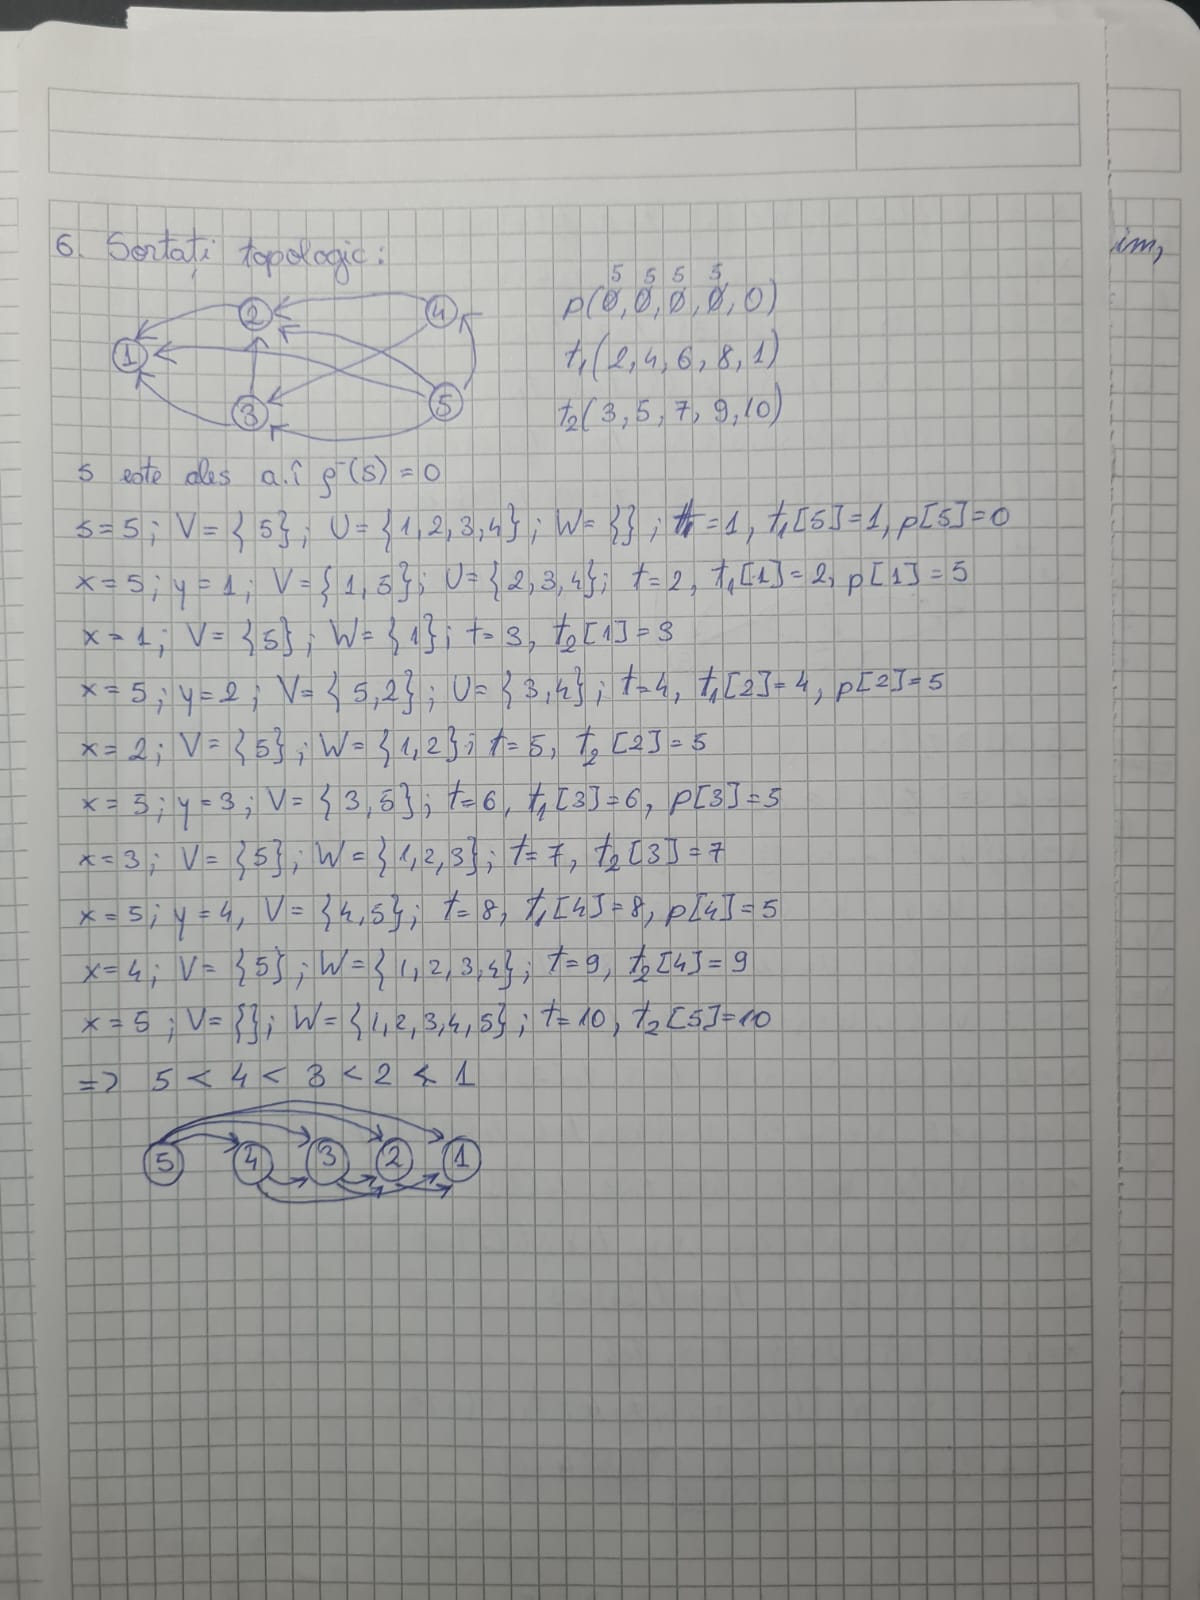 im,
6. Sortați topologic:
5 5 5 5
p(0,0,0,0,0)
2 4
t₁(2,4,6,8,1)
1
3 5
t₂(3,5,7,9,10)
s este ales a.î ρ⁻(s)=0
s=5; V={5}; U={1,2,3,4}; W={}; t=1, t₁[5]=1, p[5]=0
x=5; y=1; V={1,5}; U={2,3,4}; t=2, t₁[1]=2, p[1]=5
x=1; V={5}; W={1}; t=3, t₂[1]=3
x=5; y=2; V={5,2}; U={3,4}; t=4, t₁[2]=4, p[2]=5
x=2; V={5}; W={1,2}; t=5, t₂[2]=5
x=5; y=3; V={3,5}; t=6, t₁[3]=6, p[3]=5
x=3; V={5}; W={1,2,3}; t=7, t₂[3]=7
x=5; y=4, V={4,5}; t=8, t₁[4]=8, p[4]=5
x=4; V={5}; W={1,2,3,4}; t=9, t₂[4]=9
x=5; V={}; W={1,2,3,4,5}; t=10, t₂[5]=10
=> 5 < 4 < 3 < 2 < 1
5 4 3 2 1